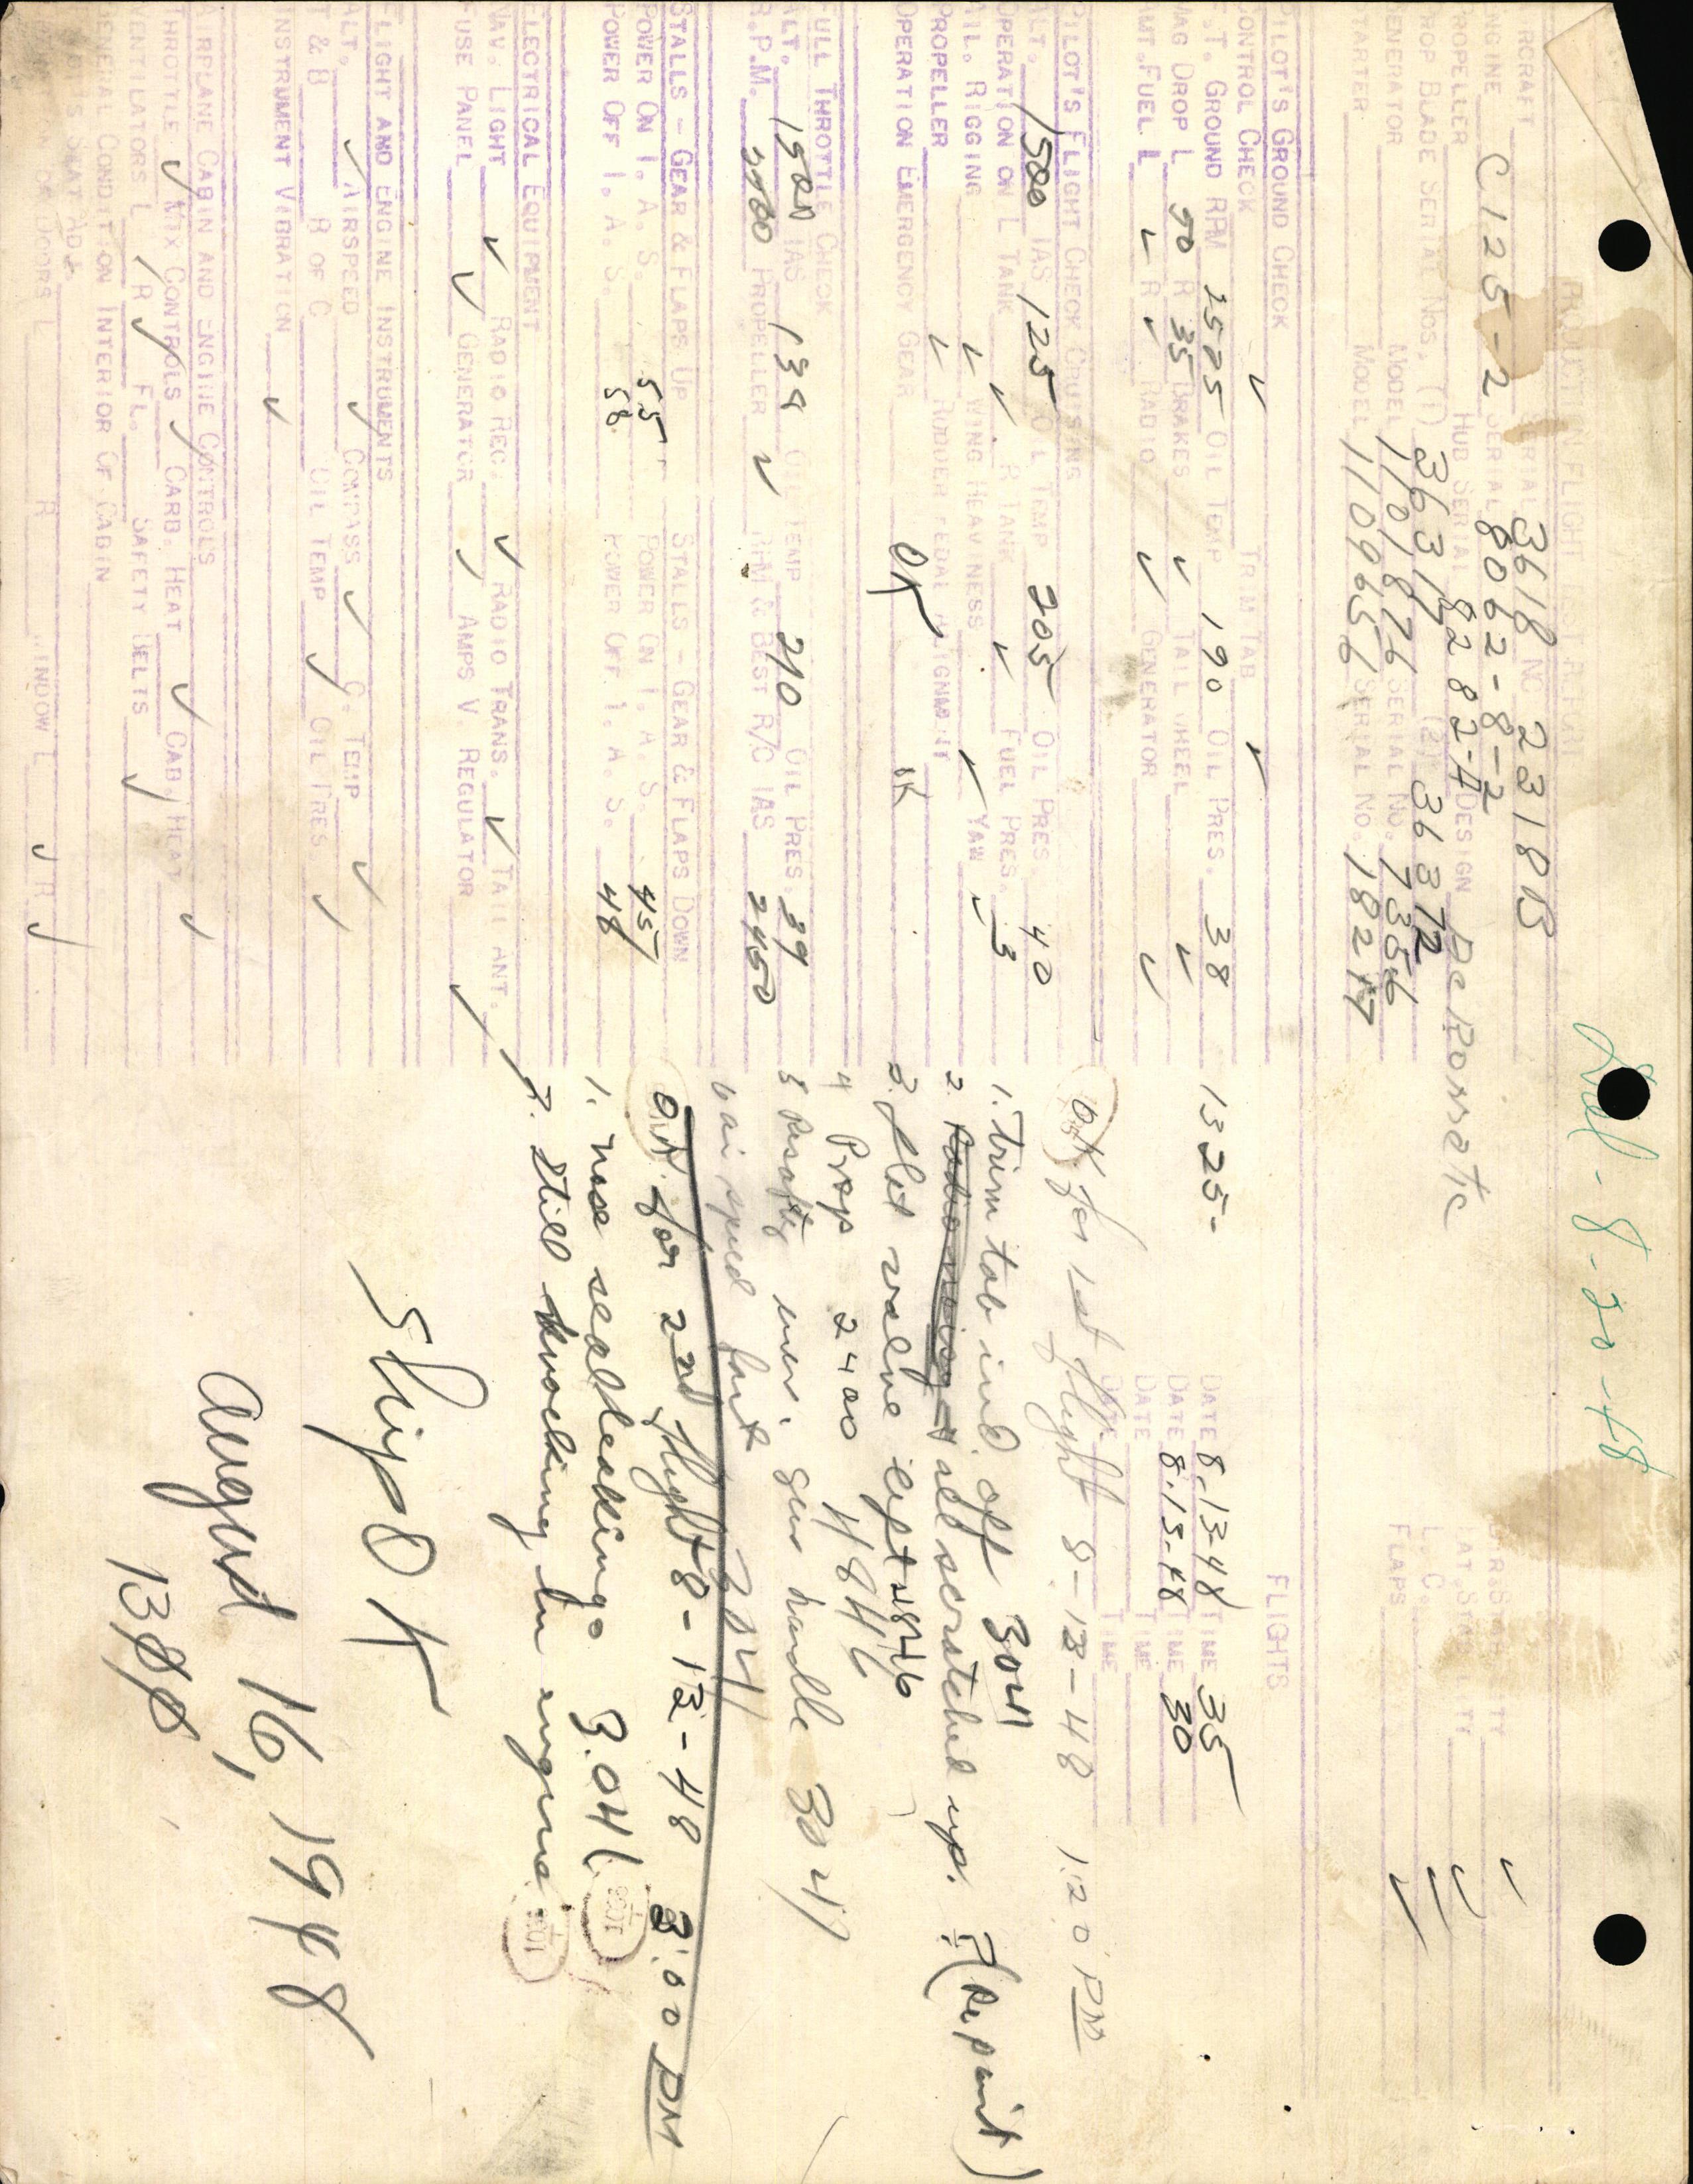 Del - 8-20-48
PRODUCTION FLIGHT TEST REPORT
AIRCRAFT SERIAL 3618 NC 2318B
ENGINE C125-2 SERIAL 8062-8-2
PROPELLER HUB SERIAL 8282-A DESIGN
PROP BLADE SERIAL NOS. (1) (2) 36372
GENERATOR MODEL 1101876 SERIAL NO. 7356
STARTER MODEL 1109656 SERIAL NO. 18217
L.C. ✓
FLAPS ✓
PILOT'S GROUND CHECK FLIGHTS
CONTROL CHECK ✓ TRIM TAB ✓
GROUND RPM OIL TEMP 190 OIL PRES. 38 1325- DATE 8.13-48 TIME 35
MAG DROP L 50 R 35 BRAKES ✓ TAIL WHEEL ✓ DATE 8.13-48 TIME 30
AMT. FUEL L ✓ R ✓ RADIO ✓ GENERATOR ✓ DATE TIME
DATE TIME
PILOT'S FLIGHT CHECK CRUISING OK for 1st flight 8-13-48 1:20 PM
ALT. 1500 IAS 125 OIL TEMP 205 OIL PRES. 40
OPERATION ON L TANK ✓ R TANK ✓ FUEL PRES. 3 1. Trim tab ind. off 3041
AIL. RIGGING ✓ WING HEAVINESS ✓ YAW ✓ 2. all scratched up. (Repaint)
PROPELLER ✓ RUDDER PEDAL ALIGNMENT
OPERATION EMERGENCY GEAR OK OK 3.
4 Prop 2400 4846
FULL THROTTLE CHECK
ALT. 1500 IAS 139 OIL TEMP 210 OIL PRES. 39 5 emer. gear handle 3041
R.P.M. PROPELLER ✓ RPM & BEST R/C IAS 2450
6 air speed fast 3041
STALLS - GEAR & FLAPS UP STALLS - GEAR & FLAPS DOWN
POWER ON I.A.S. 55 POWER ON I.A.S. 45 O.K. for 2nd flight 8-13-48 3:00 PM
POWER OFF I.A.S. 58 POWER OFF I.A.S. 48 1. nose seal leaking. 3.041
ELECTRICAL EQUIPMENT 2. Still knocking in engine
NAV. LIGHT ✓ RADIO REC. ✓ RADIO TRANS. ✓ TAIL ANT. ✓
FUSE PANEL ✓ GENERATOR ✓ AMPS V. REGULATOR ✓
FLIGHT AND ENGINE INSTRUMENTS
ALT. ✓ AIRSPEED ✓ COMPASS ✓ C. TEMP ✓ Ship OK
T & B R OF C OIL TEMP ✓ OIL PRES ✓
INSTRUMENT VIBRATION ✓
AIRPLANE CABIN AND ENGINE CONTROLS August 16, 1948
THROTTLE ✓ MIX CONTROLS ✓ CARB. HEAT ✓ CAB. HEAT ✓
VENTILATORS L ✓ R ✓ FL. SAFETY BELTS ✓
GENERAL CONDITION INTERIOR OF CABIN
SEAT ADJ.
DOORS L R WINDOW L ✓ R ✓